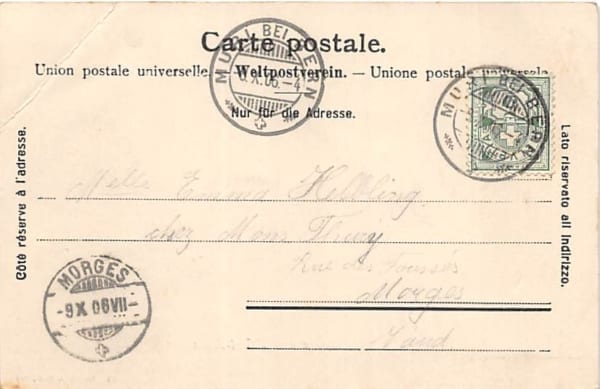 Carte postale.
Union postale universelle. — Weltpostverein. — Unione postale universale
Nur für die Adresse.
MURI BEI BERN
X.06.–4
MURI BEI BERN
Côté réservé à l'adresse.
Lato riservato all indirizzo.
Melle Emma Helbling
chez Mons
Rue des Fossés
Morges
Vaud
MORGES
-9.X.06 VII-